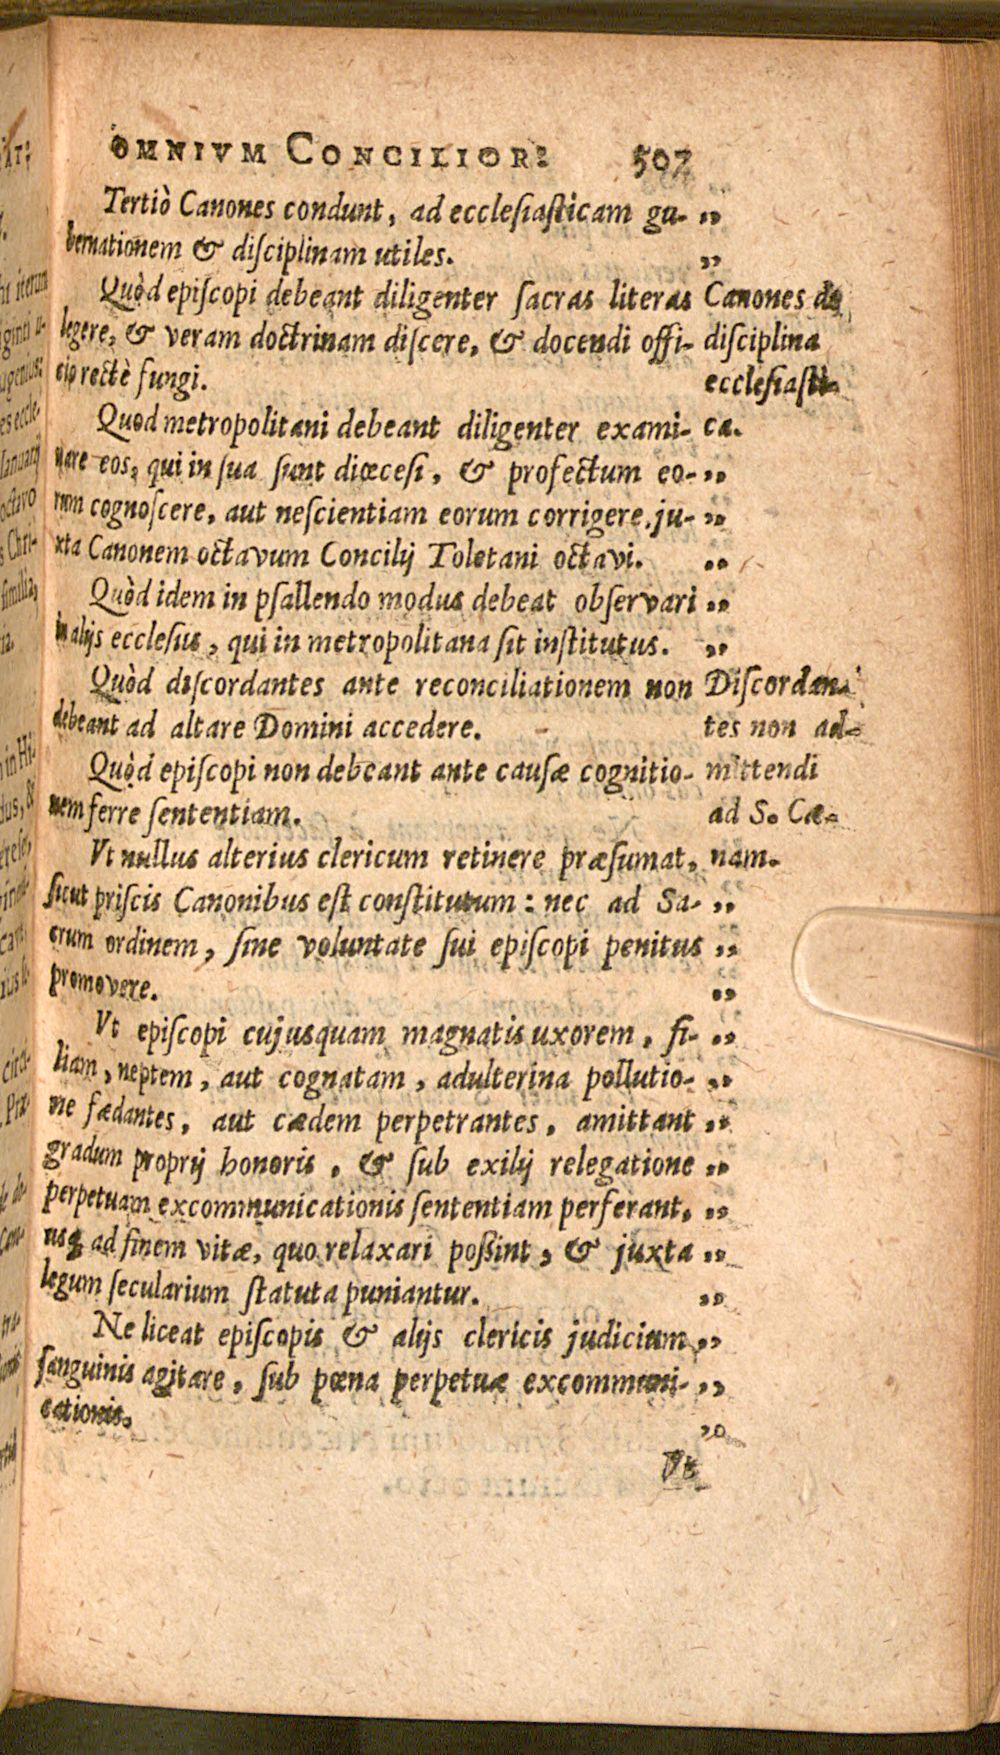 OMNIVM CONCILIOR: 507
Tertiò Canones condunt, ad ecclesiasticam gu- „
bernationem & disciplinam utiles. „
Quòd episcopi debeant diligenter sacras literas
legere, & veram doctrinam discere, & docendi offi-
cio rectè fungi.
Canones de
disciplina
ecclesiasti-
ca.
Quod metropolitani debeant diligenter exami-
nare eos, qui in sua sunt diœcesi, & profectum eo- „
rum cognoscere, aut nescientiam eorum corrigere, ju- „
xta Canonem octavum Concilij Toletani octavi. „
Quòd idem in psallendo modus debeat observari „
in alijs ecclesiis, qui in metropolitana sit institutus. „
Quòd discordantes ante reconciliationem non
debeant ad altare Domini accedere.
Quòd episcopi non debeant ante causæ cognitio-
nem ferre sententiam.
Discordan-
tes non ad-
mittendi
ad S. Cæ-
nam.
Vt nullus alterius clericum retinere præsumat,
sicut priscis Canonibus est constitutum: nec ad Sa- „
crum ordinem, sine voluntate sui episcopi penitus „
promovere. „
Vt episcopi cujusquam magnatis uxorem, fi- „
liam, neptem, aut cognatam, adulterina pollutio- „
ne fædantes, aut cædem perpetrantes, amittant „
gradum proprij honoris, & sub exilij relegatione „
perpetuam excommunicationis sententiam perferant, „
usq; ad finem vitæ, quo relaxari possint, & juxta „
legum secularium statuta puniantur. „
Ne liceat episcopis & alijs clericis judicium „
sanguinis agitare, sub pœna perpetuæ excommuni- „
cationis. „
Vt